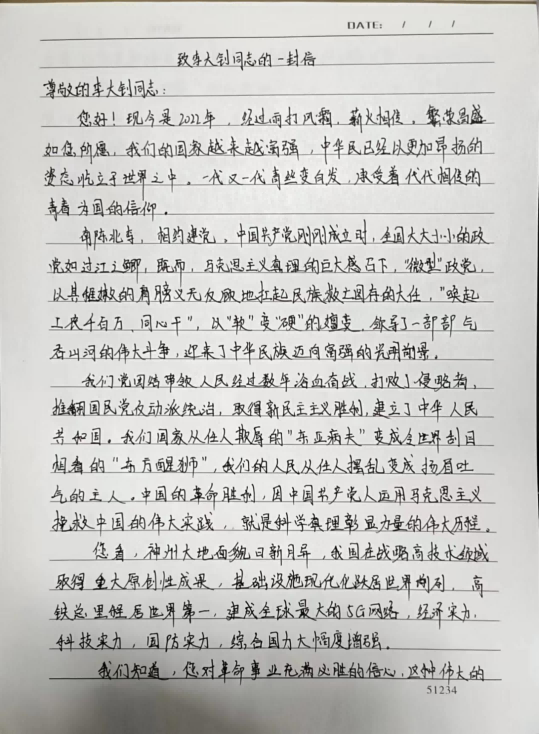 DATE: / / /
致李大钊同志的一封信
尊敬的李大钊同志:
您好!现今是2022年,经过雨打风霜,薪火相传。繁荣昌盛
如您所愿,我们的国家越来越富强,中华民已经以更加昂扬的
姿态屹立于世界之中。一代又一代青丝变白发,承受着代代相传的
青春为国的信仰。
南陈北李,相约建党。中国共产党刚刚成立时,全国大大小小的政
党如过江之鲫,既而,马克思主义真理的巨大感召下,“微型”政党,
以其稚嫩的肩膀义无反顾地扛起民族救亡图存的大任,“唤起
工农千百万,同心干”,以“软”变“硬”的嬗变,领导了一部部气
吞山河的伟大斗争,迎来了中华民族迈向富强的光明前景。
我们党团结带领人民经过数年浴血奋战,打败了侵略者,
推翻国民党反动派统治,取得新民主主义胜利,建立了中华人民
共和国。我们国家从任人欺辱的“东亚病夫”变成令世界刮目
相看的“东方醒狮”,我们的人民从任人摆乱变成扬眉吐
气的主人。中国的革命胜利,因中国共产党人运用马克思主义
挽救中国的伟大实践,就是科学真理彰显力量的伟大历程。
您看,神州大地面貌日新月异,我国在战略高技术领域
取得重大原创性成果,基础设施现代化跃居世界前列,高
铁总里程居世界第一,建成全球最大的5G网络,经济实力,
科技实力,国防实力,综合国力大幅度增强。
我们知道,您对革命事业充满必胜的信心,这种伟大的
51234